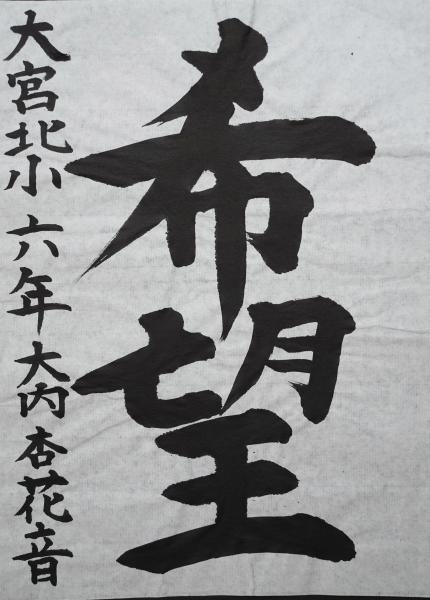 希望
大宮北小 六年 大内杏花音